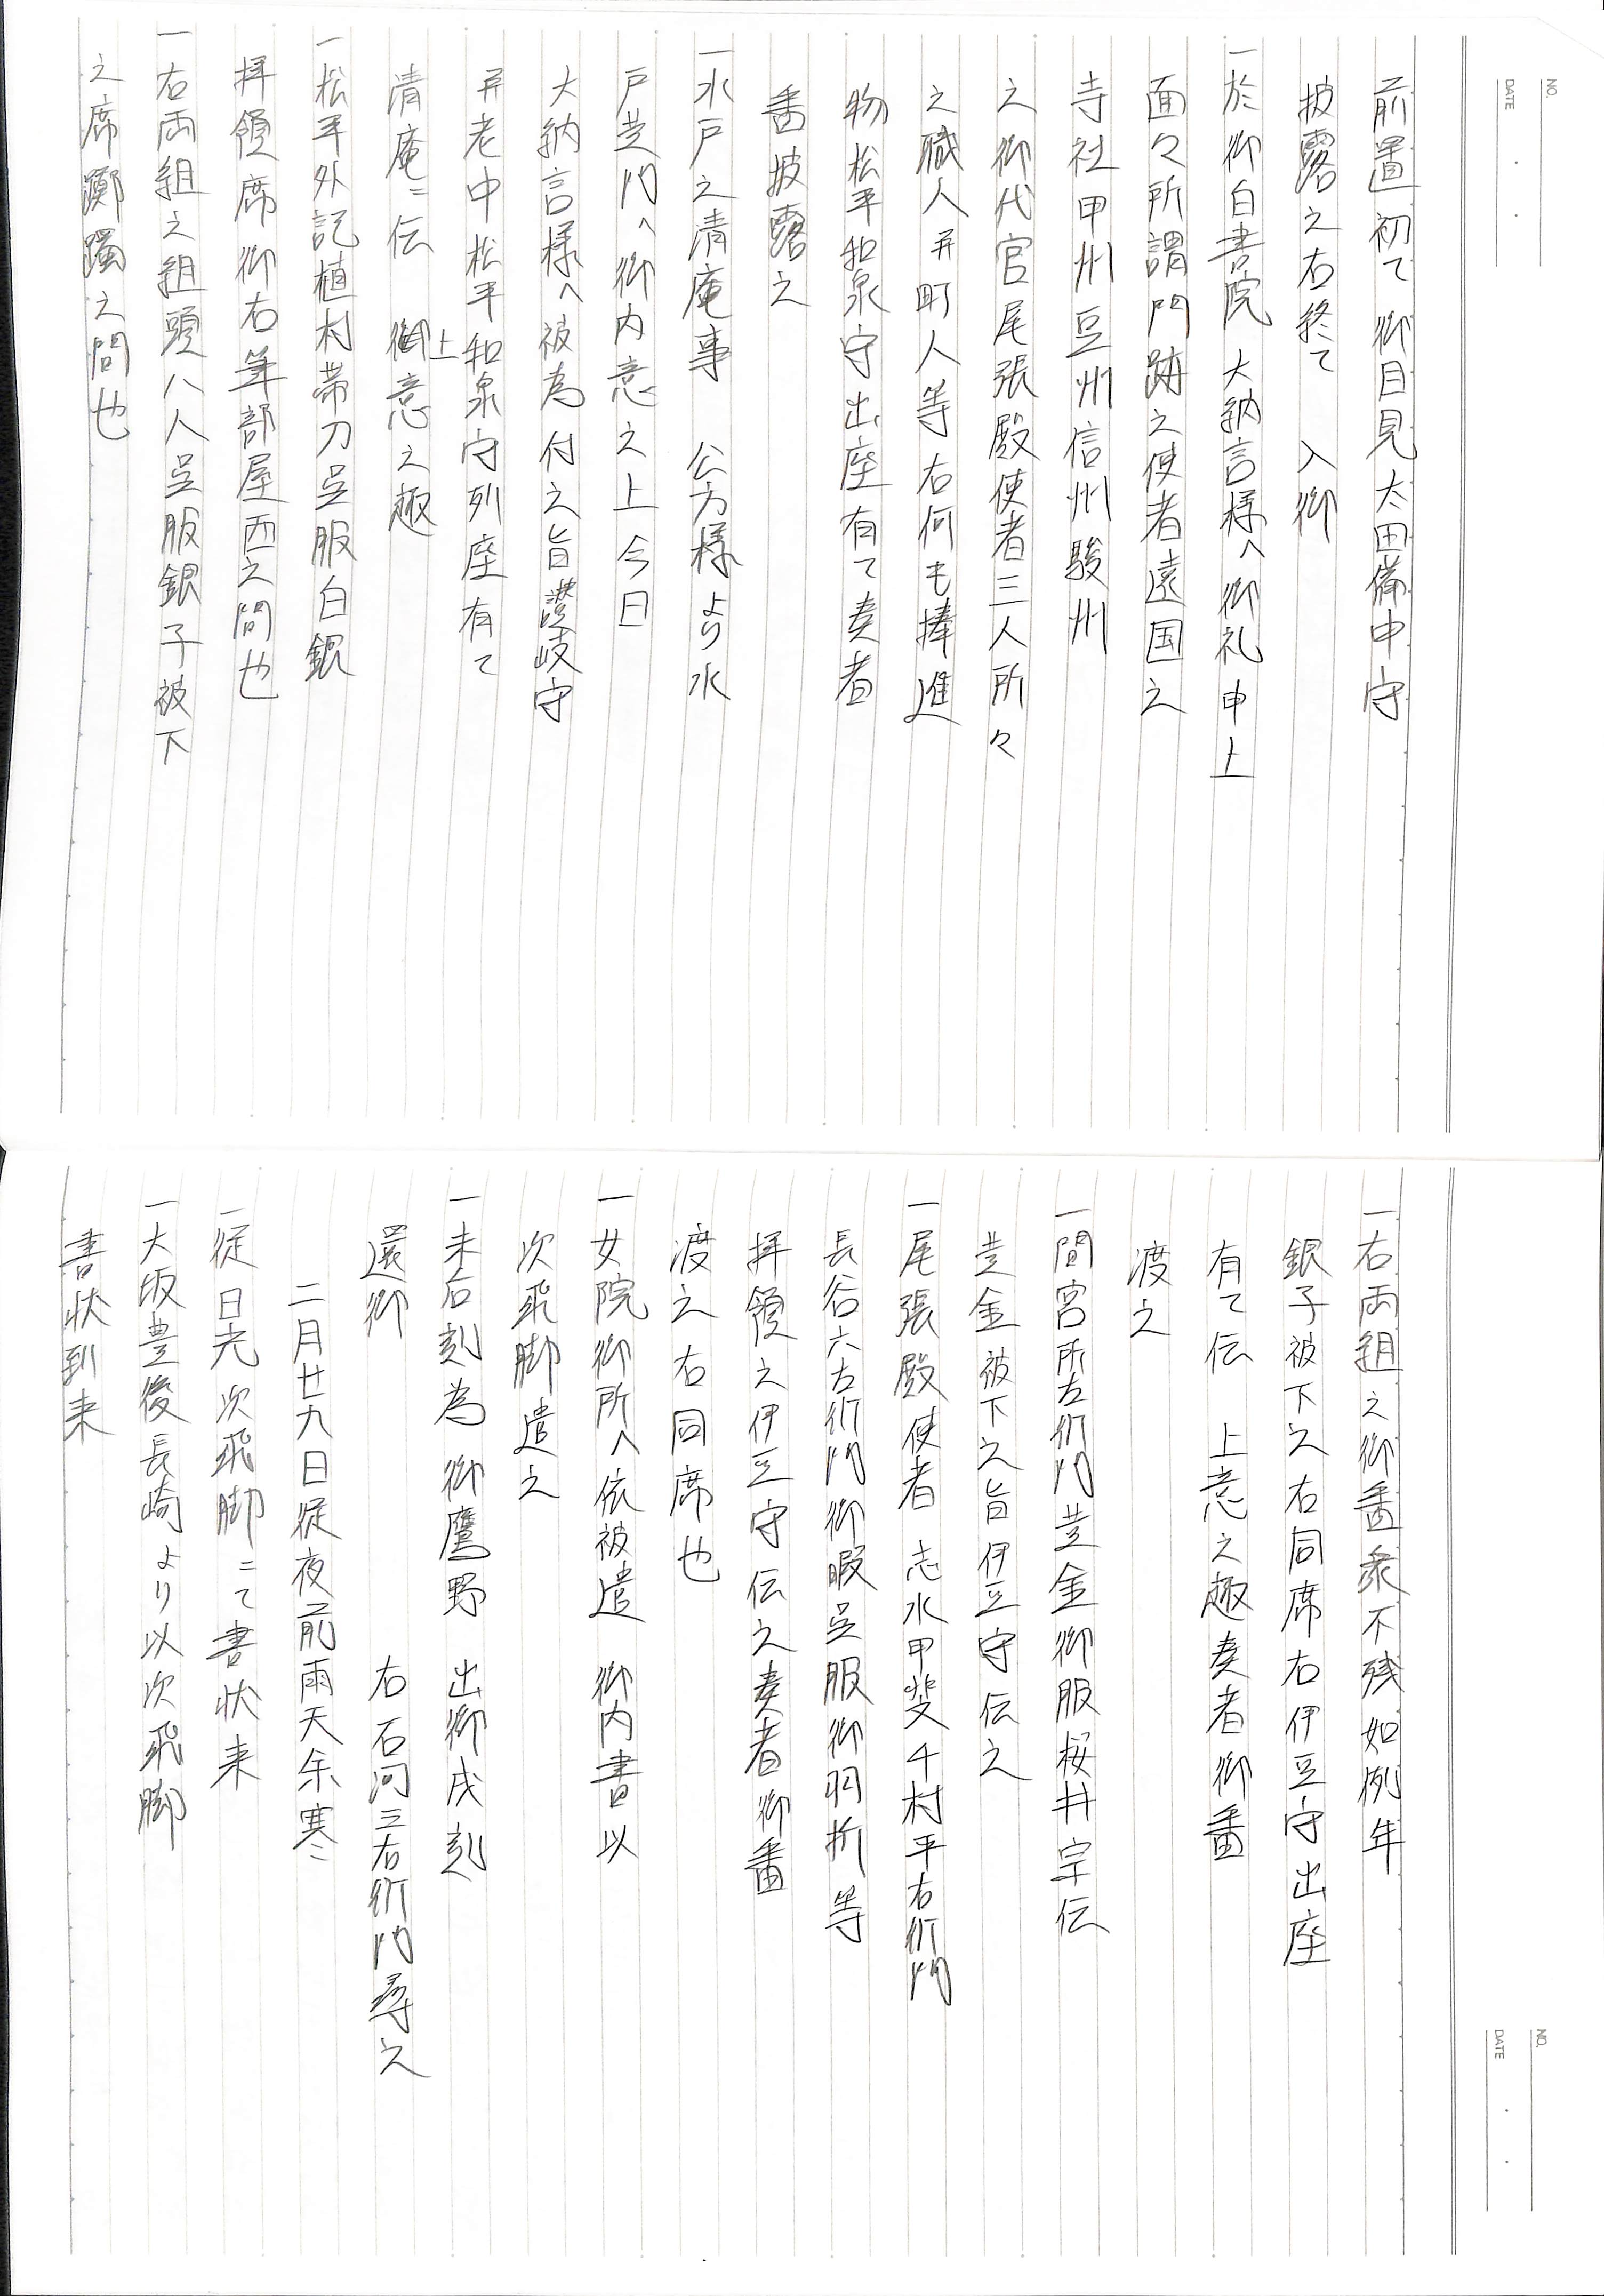 NO.
DATE
前置初て御目見太田備中守
披露之右終て 入御
一於御白書院 大納言様へ御礼申上
面々所謂門跡之使者遠国之
寺社甲州豆州信州駿州
之御代官尾張殿使者三人所々
之職人并町人等右何も捧進
物松平和泉守出座有て奏者
番披露之
一水戸之清庵事 公方様より水
戸芝門へ御内意之上今日
大納言様へ被為付之旨讃岐守
并老中松平和泉守列座有て
清庵ニ伝 上意之趣
一松平外記植村帯刀呉服白銀
拝領席御右筆部屋西之間也
一右両組之組頭八人呉服銀子被下
之席躑躅之間也
NO.
DATE
一右両組之御番衆不残如例年
銀子被下之右同席右伊豆守出座
有て伝 上意之趣奏者御番
渡之
一間宮所左衛門芝金御服桜井宗伝
芝金被下之旨伊豆守伝之
一尾張殿使者志水甲斐千村平右衛門
長谷六左衛門御暇呉服御羽折等
拝領之伊豆守伝之奏者御番
渡之右同席也
一女院御所へ依被遣 御内書以
次飛脚遣之
一未后刻為 御鷹野 出御戌刻
還御 右石河三右衛門尋之
二月廿九日従夜前雨天余寒ニ
一従日光次飛脚ニて書状来
一大坂豊後長崎より以次飛脚
書状到来